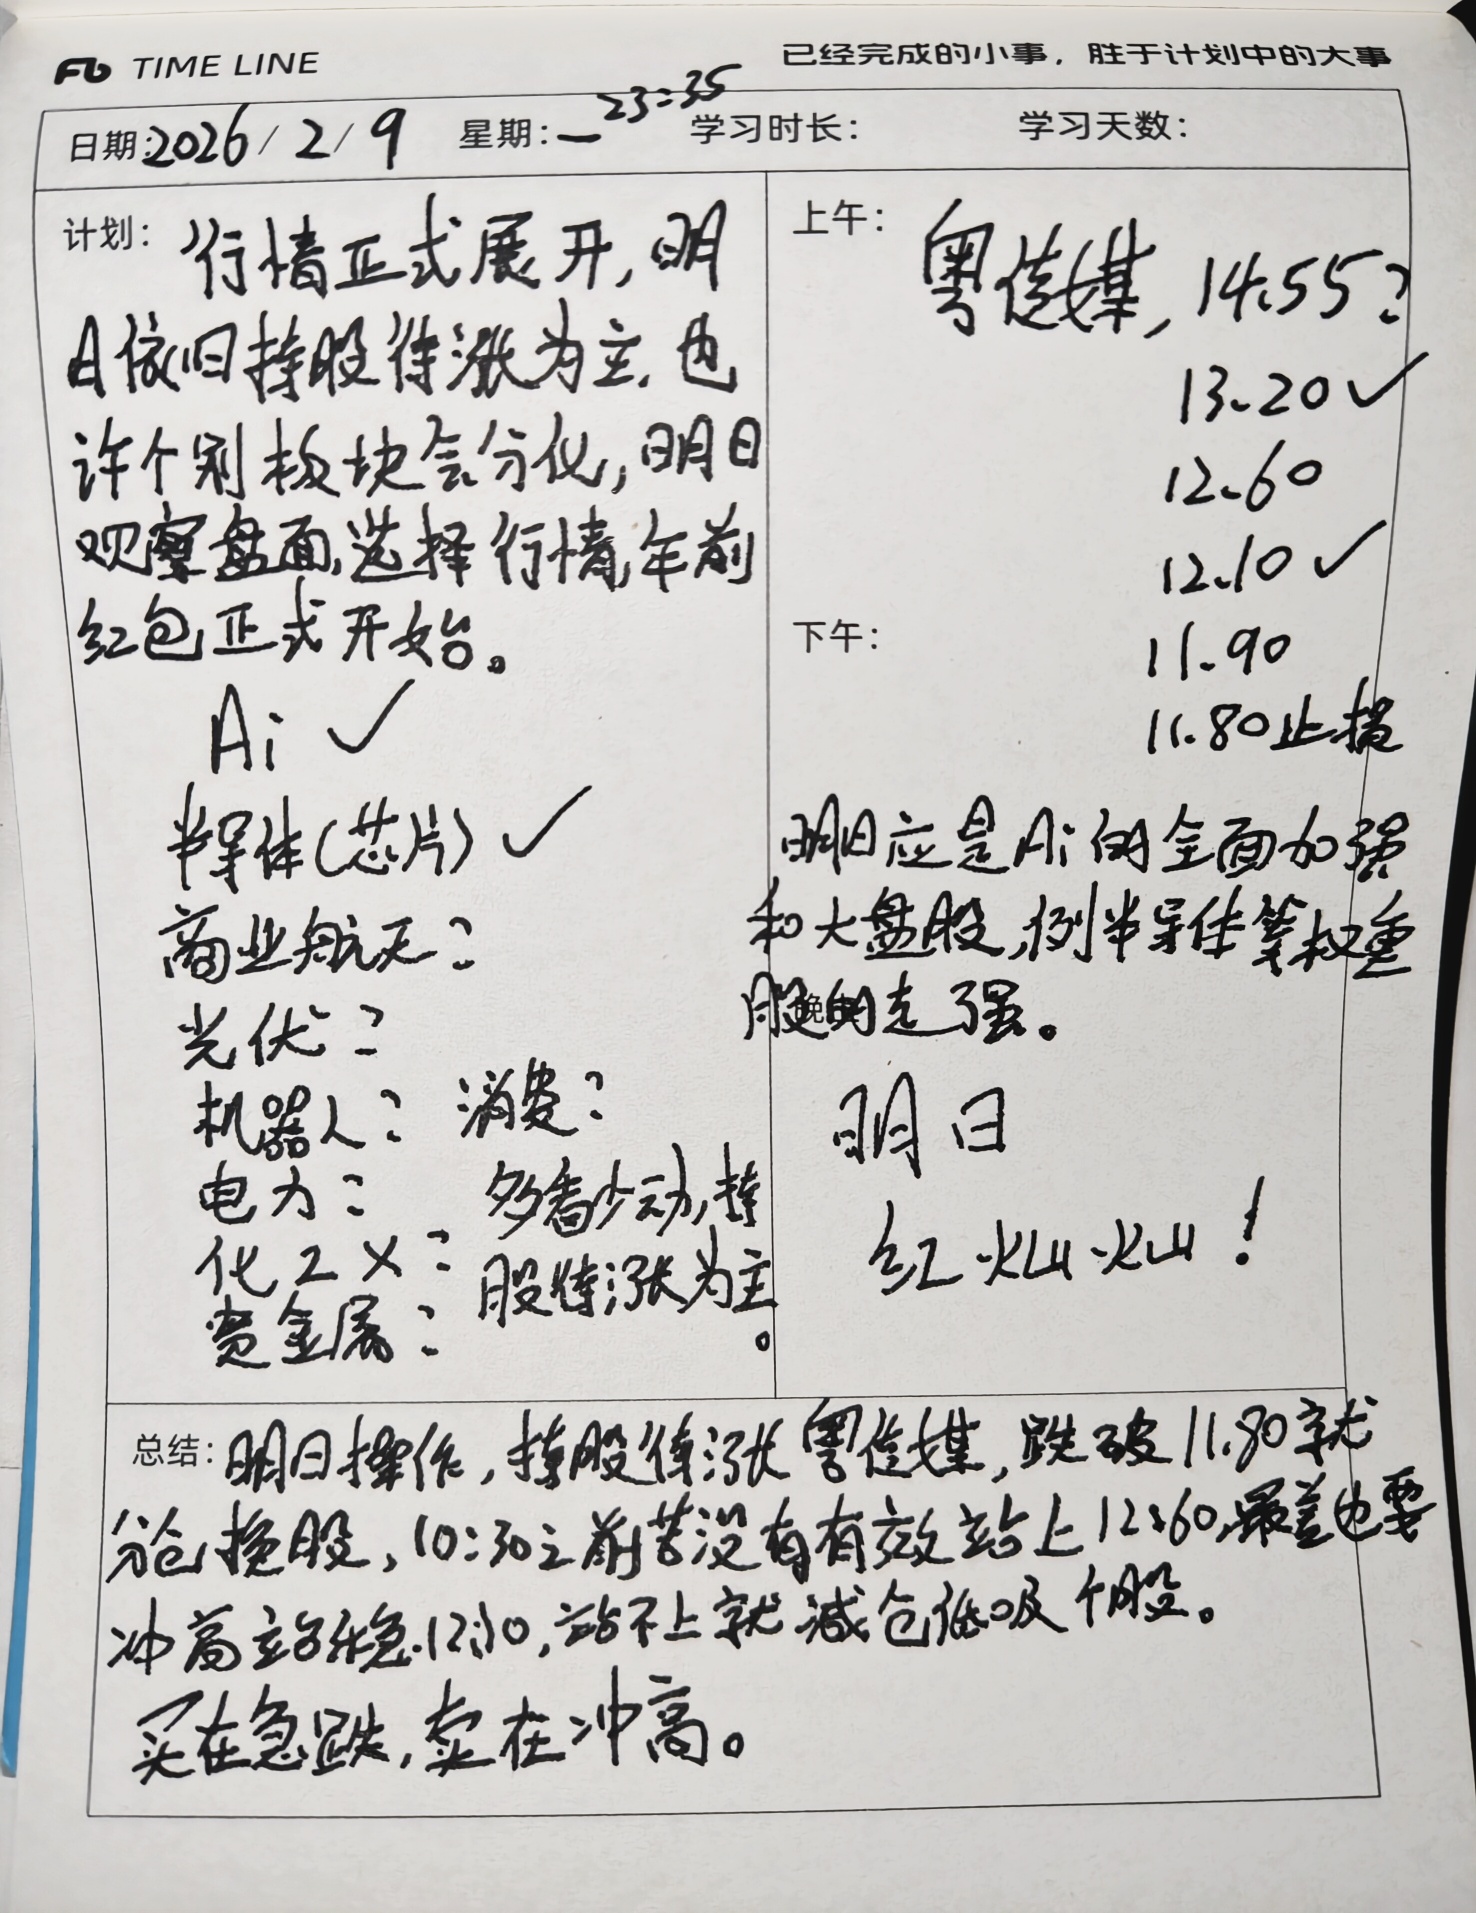 FLb TIME LINE
已经完成的小事，胜于计划中的大事
日期:2026/2/9 星期:一 23:35 学习时长: 学习天数:
计划: 行情正式展开,明
日依旧持股待涨为主,也
许个别板块会分化,明日
观察盘面,选择行情,年前
红包正式开始。
Ai ✓
半导体(芯片) ✓
商业航天?
光伏?
机器人? 消费?
电力?
化工 X?
贵金属?
多看少动,持
股待涨为主
。
上午:
粤传媒, 14.55?
13.20 ✓
12.60
12.10 ✓
下午:
11.90
11.80止损
明日应是Ai的全面加强
和大盘股,例半导体等权重
股的走强。
明日
红灿灿!
总结: 明日操作,持股待涨粤传媒,跌破11.80就
分仓换股,10:30之前若没有有效站上12.60,最差也要
冲高站稳12.10,站不上就减仓低吸个股。
买在急跌,卖在冲高。